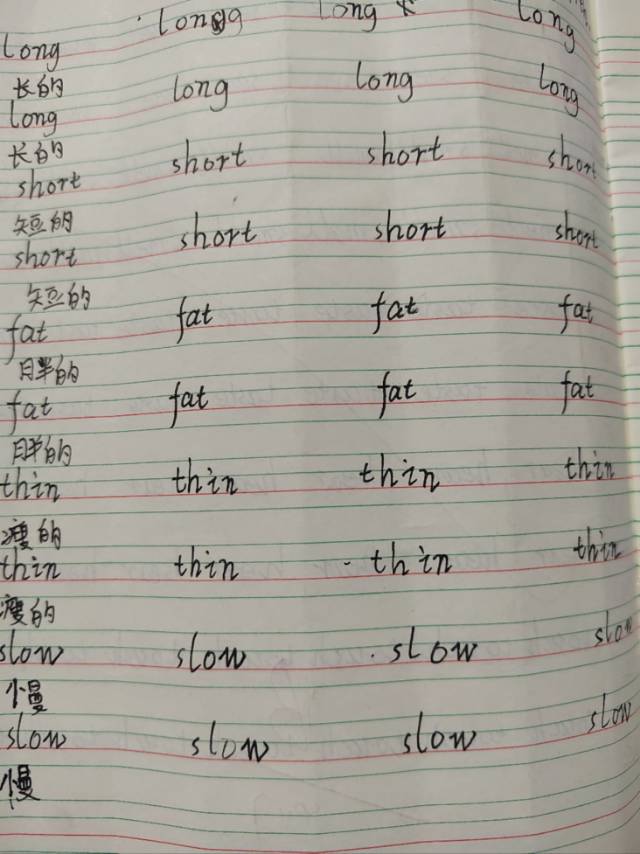 long long long long
长的
long long long long
长的
short short short short
短的
short short short short
短的
fat fat fat fat
胖的
fat fat fat fat
胖的
thin thin thin thin
瘦的
thin thin thin thin
瘦的
slow slow slow slow
慢
slow slow slow slow
慢